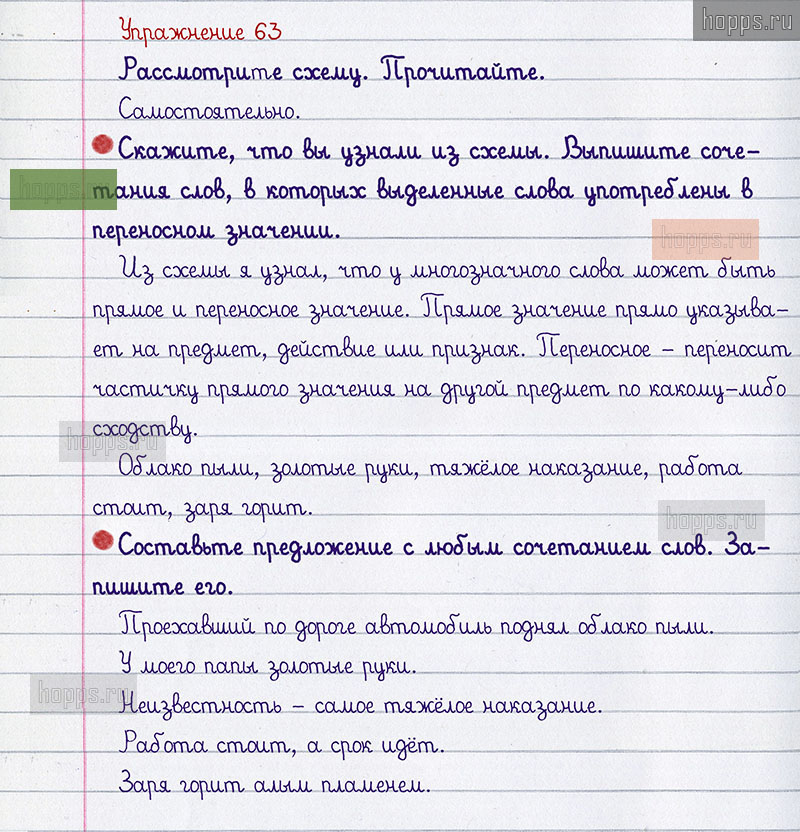 Упражнение 63
hopps.ru
Рассмотрите схему. Прочитайте.
Самостоятельно.
Скажите, что вы узнали из схемы. Выпишите соче-
hopps.ru
тания слов, в которых выделенные слова употреблены в
переносном значении.
hopps.ru
Из схемы я узнал, что у многозначного слова может быть
прямое и переносное значение. Прямое значение прямо указыва-
ет на предмет, действие или признак. Переносное – переносит
частичку прямого значения на другой предмет по какому-либо
сходству.
hopps.ru
Облако пыли, золотые руки, тяжёлое наказание, работа
стоит, заря горит.
hopps.ru
Составьте предложение с любым сочетанием слов. За-
пишите его.
Проехавший по дороге автомобиль поднял облако пыли.
У моего папы золотые руки.
hopps.ru
Неизвестность – самое тяжёлое наказание.
Работа стоит, а срок идёт.
Заря горит алым пламенем.